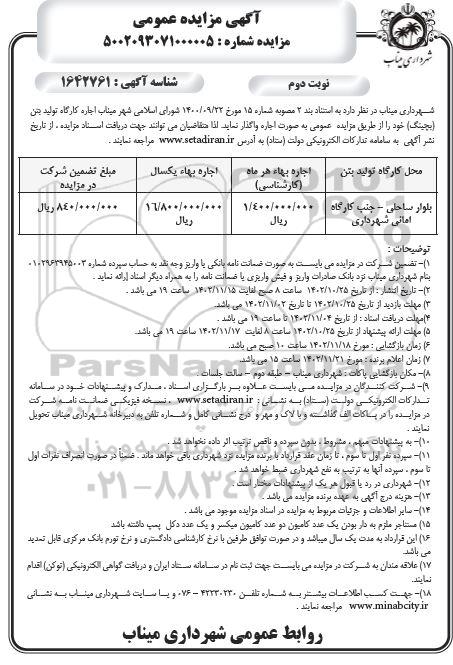 آگهی مزایده عمومی
مزایده شماره : ۵۰۰۲۰۹۳۰۷۱۰۰۰۰۰۵
شهرداری میناب
نوبت دوم
شناسه آگهی : ۱۶۴۲۷۶۱
شهرداری میناب در نظر دارد به استناد بند ۲ مصوبه شماره ۱۵ مورخ ۱۴۰۰/۰۹/۲۲ شورای اسلامی شهر میناب اجاره کارگاه تولید بتن
(بچینگ) خود را از طریق مزایده عمومی به صورت اجاره واگذار نماید. لذا متقاضیان می توانند جهت دریافت اسناد مزایده ، از تاریخ
نشر آگهی به سامانه تدارکات الکترونیکی دولت (ستاد) به آدرس www.setadiran.ir مراجعه نمایند .
محل کارگاه تولید بتن
اجاره بهاء هر ماه (کارشناسی)
اجاره بهاء یکسال
مبلغ تضمین شرکت در مزایده
بلوار ساحلی – جنب کارگاه امانی شهرداری
۱/۴۰۰/۰۰۰/۰۰۰ ریال
۱۶/۸۰۰/۰۰۰/۰۰۰ ریال
۸۴۰/۰۰۰/۰۰۰ ریال
توضیحات :
۱)– تضمین شرکت در مزایده می بایست به صورت ضمانت نامه بانکی یا واریز وجه نقد به حساب سپرده شماره ۰۱۰۲۹۶۳۹۴۵۰۰۳
بنام شهرداری میناب نزد بانک صادرات واریز و فیش واریزی یا ضمانت نامه را به همراه دیگر اسناد ارائه نماید .
۲)– تاریخ انتشار : از تاریخ ۱۴۰۲/۱۰/۲۵ ساعت ۸ صبح لغایت ۱۴۰۲/۱۱/۱۵ ساعت ۱۹ می باشد .
۳) مهلت بازدید از تاریخ ۱۴۰۲/۱۰/۲۵ تا تاریخ ۱۴۰۲/۱۱/۰۲ می باشد.
۴)مهلت دریافت اسناد : از تاریخ ۱۴۰۲/۱۱/۰۴ تا ساعت ۱۹ می باشد .
۵) مهلت ارائه پیشنهاد از تاریخ ۱۴۰۲/۱۰/۲۵ ساعت ۸ لغایت ۱۴۰۲/۱۱/۱۷ ساعت ۱۹ می باشد.
۶) زمان بازگشایی : مورخ ۱۴۰۲/۱۱/۱۸ ساعت ۱۰ صبح می باشد.
۷) زمان اعلام برنده : مورخ ۱۴۰۲/۱۱/۲۱ ساعت ۱۵ می باشد.
۸)– مکان بازگشایی پاکات : شهرداری میناب – طبقه دوم – سالت جلسات .
۹)– شرکت کنندگان در مزایده می بایست علاوه بر بارگزاری اسناد ، مدارک و پیشنهادات خود در سامانه
تدارکات الکترونیکی دولت (ستاد) به نشانی : www.setadiran.ir ، نسخه فیزیکی ضمانت نامه شرکت
در مزایده را در پاکات الف گذاشته و با لاک و مهر و درج نشانی کامل و شماره تلفن به دبیرخانه شهرداری میناب تحویل
نمایند .
۱۰)– به پیشنهادات مبهم ، مشروط ، بدون سپرده و ناقص ترتیب اثر داده نخواهد شد .
۱۱)– سپرده نفر اول تا سوم ، تا زمان عقد قرارداد با برنده مزایده نزد شهرداری باقی خواهد ماند . ضمناً در صورت انصراف نفرات اول
تا سوم ، سپرده آنها به ترتیب به نفع شهرداری ضبط خواهد شد .
۱۲)– شهرداری در رد یا قبول هر یک از پیشنهادات مختار است .
۱۳)– هزینه درج آگهی به عهده برنده مزایده می باشد .
۱۴)– سایر اطلاعات و جزئیات مربوط به مزایده در اسناد مزایده موجود می باشد .
۱۵) مستاجر ملزم به دار بودن یک عدد کامیون دو عدد کامیون میکسر و یک عدد دکل پمپ داشته باشد
۱۶) این قرارداد به مدت یک سال میباشد و در صورت توافق طرفین با نرخ کارشناسی دادگستری و نرخ تورم بانک مرکزی قابل تمدید
می باشد.
۱۷) علاقه مندان به شرکت در مزایده می بایست جهت ثبت نام در سامانه ستاد ایران و دریافت گواهی الکترونیکی (توکن) اقدام
نمایند.
۱۸)– جهت کسب اطلاعات بیشتر به شماره تلفن ۴۲۲۳۰۲۳۰ – ۰۷۶ و یا سایت شهرداری میناب به نشانی
www.minabcity.ir مراجعه نمایند .
روابط عمومی شهرداری میناب